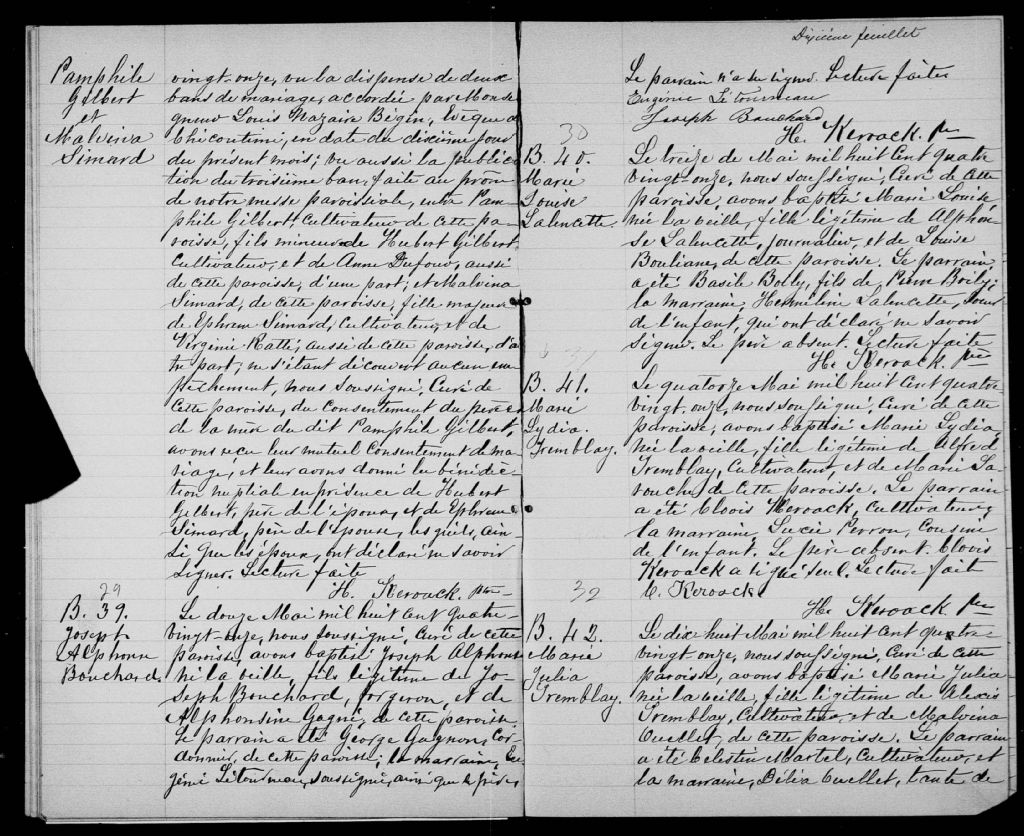 Pamphile
Gilbert
et
Malvina
Simard
vingt-onze, vu la dispense de deux
bans de mariage, accordée par Monse
gneur Louis Nazaire Bégin, Evêque de
Chicoutimi, en date du dixième jour
du présent mois; vu aussi la publica
tion du troisième ban, faite au prône
de notre messe paroissiale, entre Pam-
phile Gilbert, Cultivateur de cette pa-
roisse, fils mineur de Hubert Gilbert,
Cultivateur, et de Anne Dufour, aussi
de cette paroisse, d'une part; et Malvina
Simard, de cette paroisse, fille majeure
de Ephrem Simard, Cultivateur, et de
Virginie Ratté, aussi de cette paroisse, d'au
tre part; ne s'étant découvert aucun em
pêchement, nous soussigné, Curé de
cette paroisse, du consentement du père et
de la mère du dit Pamphile Gilbert,
avons reçu leur mutuel consentement de ma-
riage, et leur avons donné la bénédic-
tion nuptiale en présence de Hubert
Gilbert, père de l'époux, et de Ephrem
Simard, père de l'épouse, lesquels, ain-
si que les époux, ont déclaré ne savoir
signer. Lecture faite
H. Kerouack, ptre
29
B. 39.
Joseph
Alphonse
Bouchard
Le douze Mai mil huit cent quatre-
vingt-onze, nous soussigné, Curé de cette
paroisse, avons baptisé Joseph Alphonse
né la veille, fils légitime de Jo-
seph Bouchard, forgeron, et de
Alphonsine Gagné, de cette paroisse.
Le parrain a été George Gagnon, Cor-
donnier, de cette paroisse; la marraine, Eu
génie Létourneau, soussignée, ainsi que le père,
Dixième feuillet
Le parrain n'a su signer. Lecture faite
Eugénie Létourneau
Joseph Bouchard
H. Kerouack. ptre
30
B. 40.
Marie
Louise
Lalencette.
Le treize de Mai mil huit cent quatre
vingt-onze, nous soussigné, Curé de cette
paroisse, avons baptisé Marie Louise
née la veille, fille légitime de Alphon-
se Lalencette, journalier, et de Louise
Bouliane, de cette paroisse. Le parrain
a été Basile Boily, fils de Pierre Boily;
la marraine, Herméline Lalencette, sœur
de l'enfant, qui ont déclaré ne savoir
signer. Le père absent. Lecture faite
H. Kerouack. ptre
31
B. 41.
Marie
Lydia
Tremblay.
Le quatorze Mai mil huit cent quatre
vingt-onze, nous soussigné, Curé de cette
paroisse, avons baptisé Marie Lydia
née la veille, fille légitime de Alfred
Tremblay, Cultivateur, et de Marie La-
rouche, de cette paroisse. Le parrain
a été Clovis Kerouack, Cultivateur;
la marraine, Lucie Perron, Cousine
de l'enfant. Le père absent. Clovis
Kerouack a signé seul. Lecture faite
C. Kerouack
H. Kerouack. ptre
32
B. 42.
Marie
Julia
Tremblay.
Le dix huit Mai mil huit cent quatre-
vingt-onze, nous soussigné, Curé de cette
paroisse, avons baptisé Marie Julia
née la veille, fille légitime de Alexis
Tremblay, Cultivateur, et de Malvina
Ouellet, de cette paroisse. Le parrain
a été Célestin Martel, Cultivateur, et
la marraine, Délia Ouellet, tante de